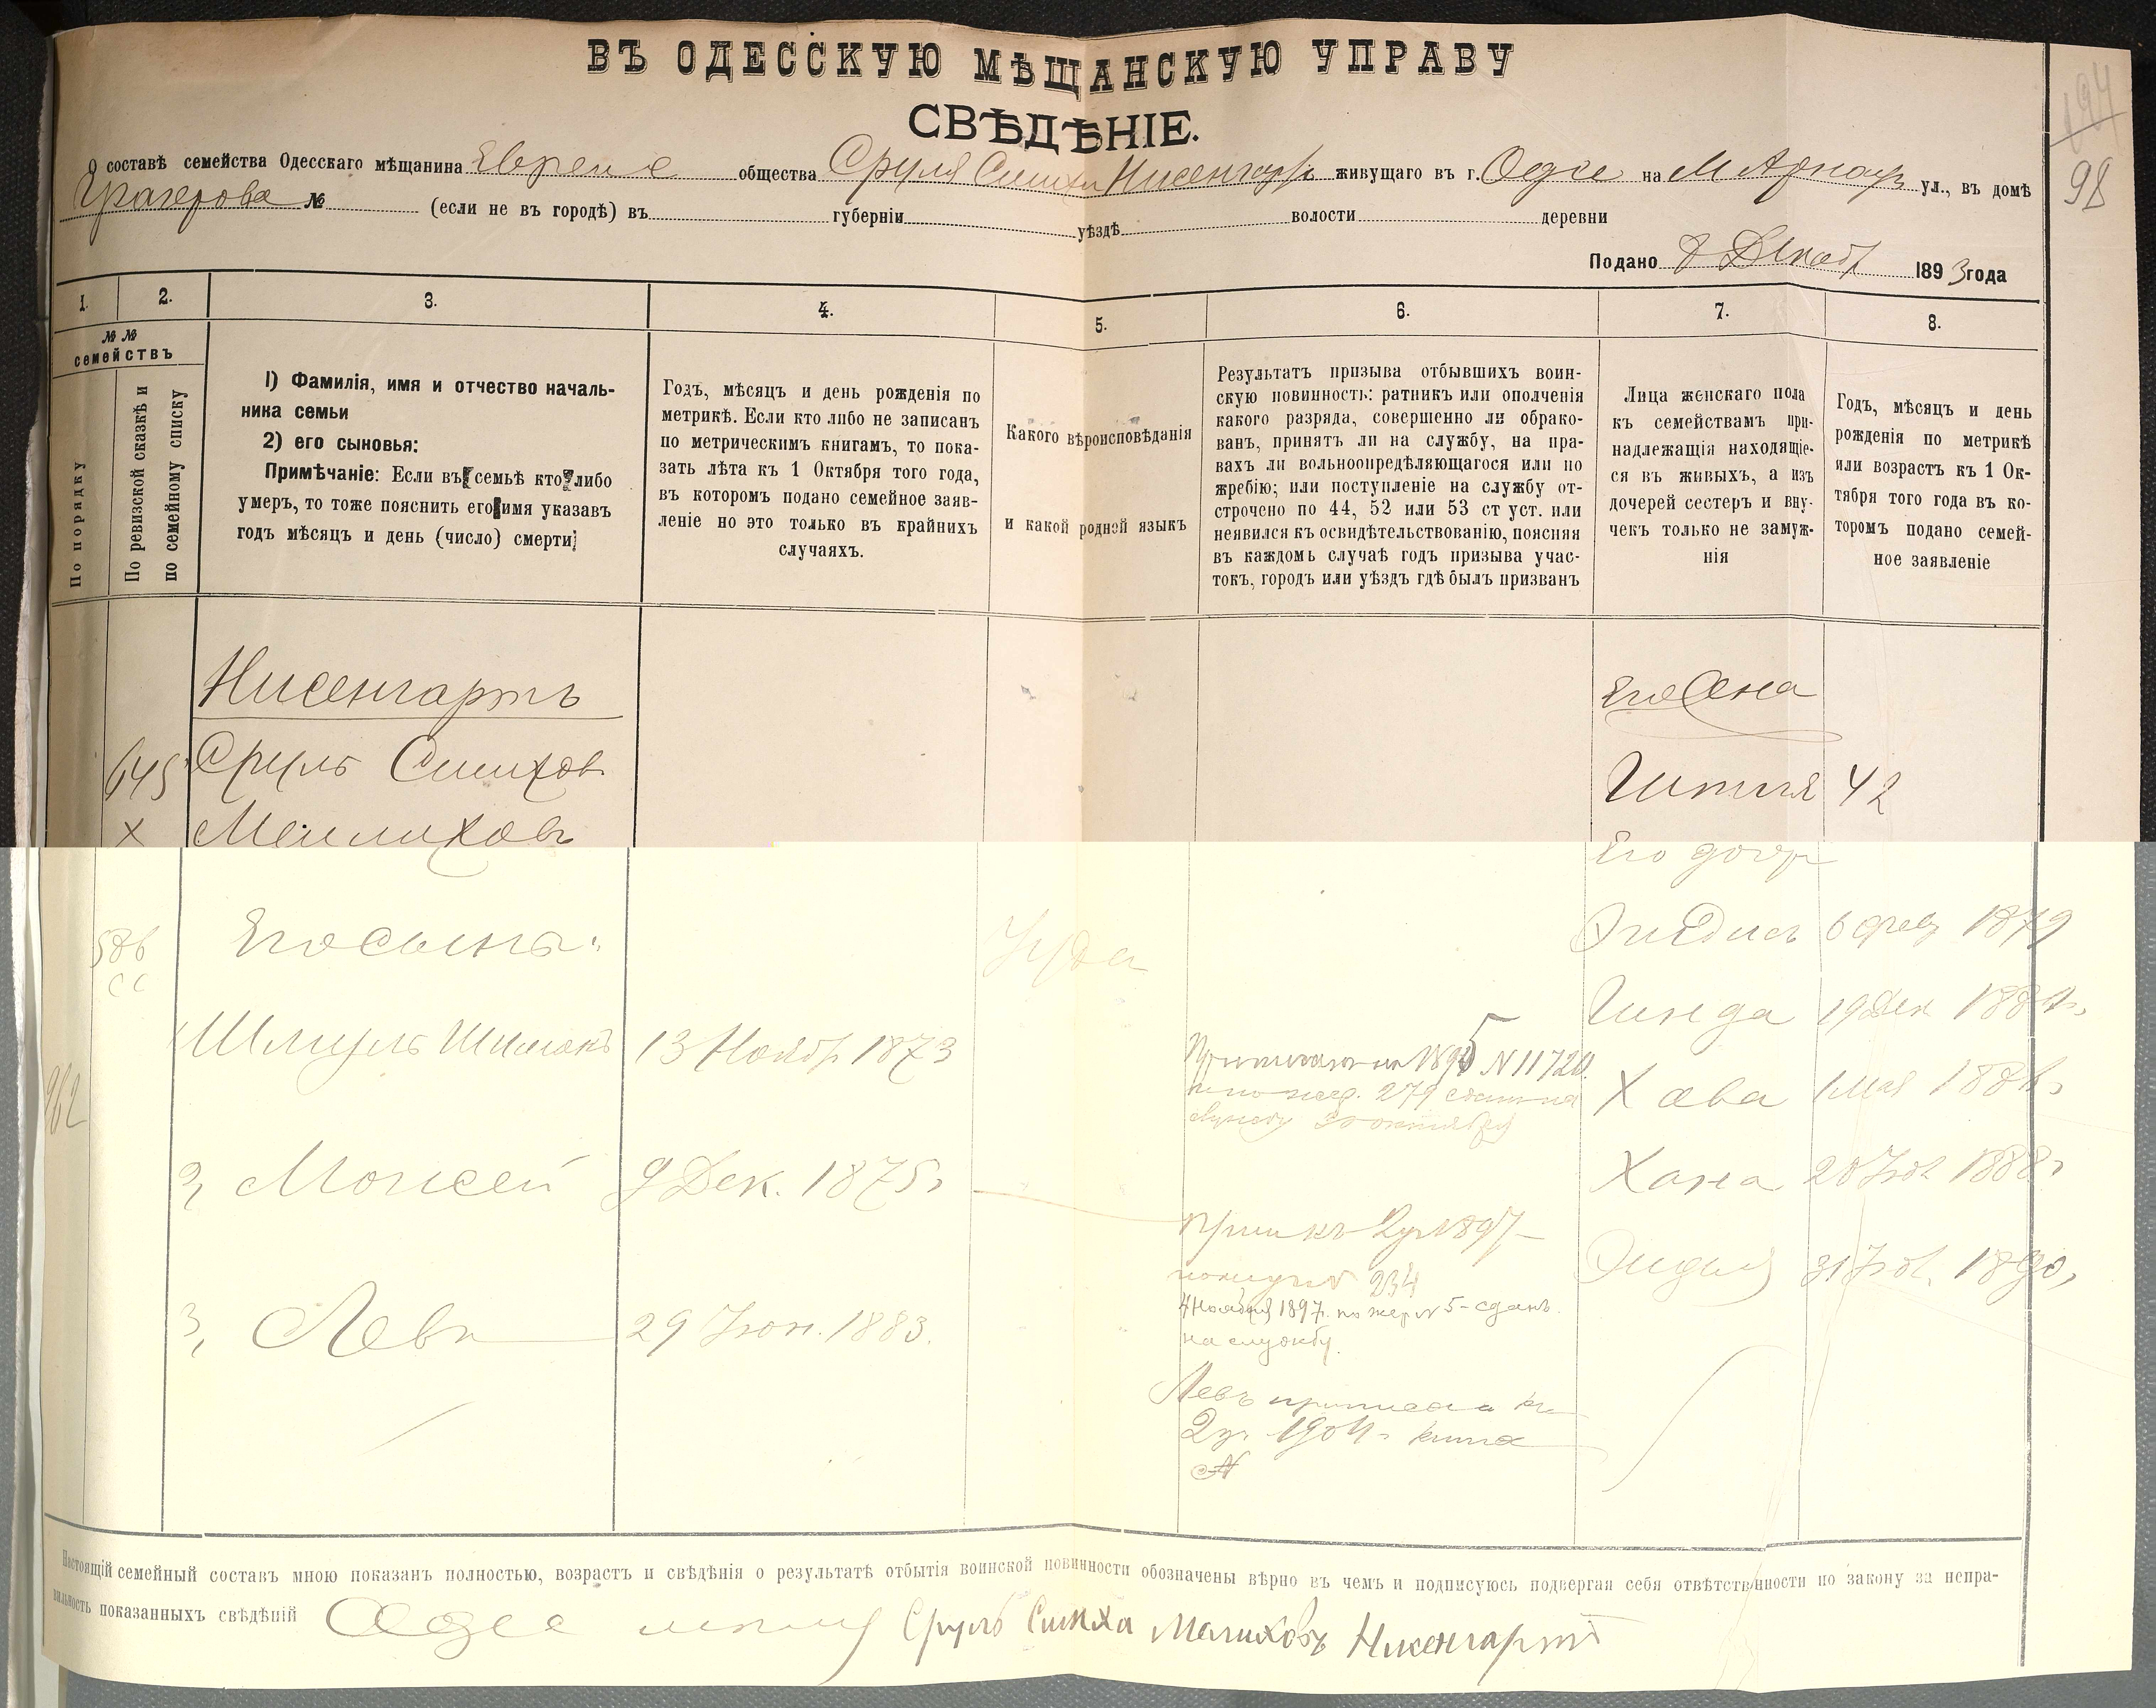 ВЪ ОДЕССКУЮ МѢЩАНСКУЮ УПРАВУ
СВѢДѢНІЕ.
О составѣ семейства Одесскаго мѣщанина Еврея общества Сруля Симхи Нисенгартъ живущаго въ г. Одесе на М Арнаут ул., въ домѣ
№ (если не въ городѣ) въ губерніи уѣздѣ волости деревни
Подано 8 Декаб 1893 года
194
98
1. 2. 3. 4. 5. 6. 7. 8.
№ №
семействъ
По порядку
По ревизской сказкѣ и
по семейному списку
1) Фамилія, имя и отчество началь-
ника семьи
2) его сыновья:
Примѣчаніе: Если въ семьѣ кто либо
умеръ, то тоже пояснить его имя указавъ
годъ мѣсяцъ и день (число) смерти
Годъ, мѣсяцъ и день рожденія по
метрикѣ. Если кто либо не записанъ
по метрическимъ книгамъ, то пока-
зать лѣта къ 1 Октября того года,
въ которомъ подано семейное заяв-
леніе но это только въ крайнихъ
случаяхъ.
Какого вѣроисповѣданія
и какой родной языкъ
Результатъ призыва отбывшихъ воин-
скую повинность: ратникъ или ополченія
какого разряда, совершенно ли обрако-
ванъ, принятъ ли на службу, на пра-
вахъ ли вольноопредѣляющагося или по
жребію; или поступленіе на службу от-
строчено по 44, 52 или 53 ст уст. или
неявился къ освидѣтельствованію, поясняя
въ каждомъ случаѣ годъ призыва учас-
токъ, городъ или уѣздъ гдѣ былъ призванъ
Лица женскаго пола
къ семействамъ при-
надлежащія находящіе-
ся въ живыхъ, а изъ
дочерей сестеръ и вну-
чекъ только не замуж-
нія
Годъ, мѣсяцъ и день
рожденія по метрикѣ
или возрастъ къ 1 Ок-
тября того года въ ко-
торомъ подано семей-
ное заявленіе
Нисенгартъ
645 Сруль Симхов
х Меилиховъ
586
Его сыны:
Иуда
Шмуль 13 Ноябр 1873
962
2, Моисей 9 Дек. 1875г
3, Левъ 29 Іюн. 1883.
1895 N 11720.
279
30 октября
1897
234
4 Ноября 1897г. по жер N 5 - сданъ
на службу.
Левъ приписанъ къ
2 уч 1904г
N
Его Жена
42
Его дочер
6 фев 1879
Гинда 19 Дек
Хава 1 Мая
Хана 1888г
31 1890,
Настоящій семейный составъ мною показанъ полностью, возрастъ и свѣдѣнія о результатѣ отбытія воинской повинности обозначены вѣрно въ чемъ и подписуюсь подвергая себя отвѣтственности по закону за непра-
вильность показанныхъ свѣдѣній Одес Сруль Симха Мелиховъ Нисенгартъ